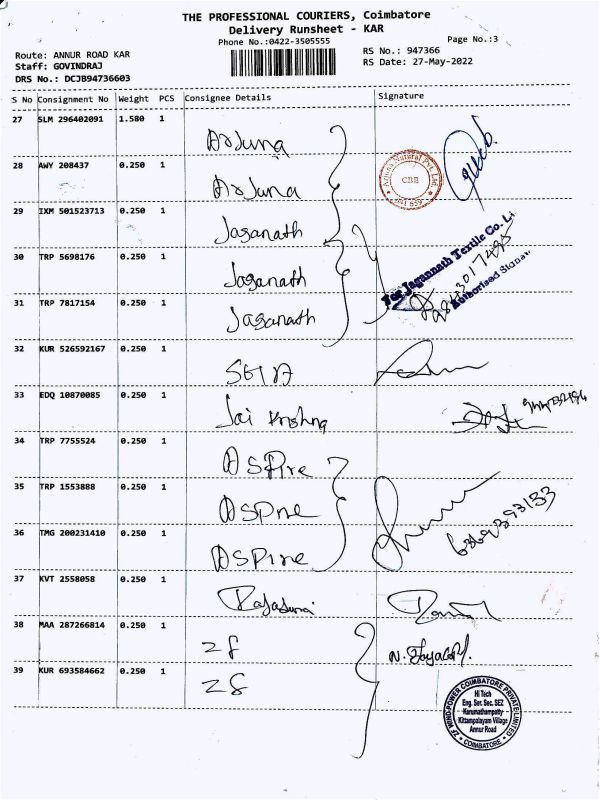 THE PROFESSIONAL COURIERS, Coimbatore
Delivery Runsheet - KAR
Phone No.:0422-3505555
Page No.:3
Route: ANNUR ROAD KAR
Staff: GOVINDRAJ
DRS No.: DCJB94736603
RS No.: 947366
RS Date: 27-May-2022
S No Consignment No Weight PCS Consignee Details Signature
27 SLM 296402091 1.580 1 Arjuna
28 AWY 208437 0.250 1 Arjuna
CBE
29 IXM 501523713 0.250 1 Jaganath
30 TRP 5698176 0.250 1 Jaganath
For Jagannath Textile Co. Li
Authorised Signa
31 TRP 7817154 0.250 1 Jaganath
32 KUR 526592167 0.250 1
33 EDQ 10870085 0.250 1 Jai Krishna
34 TRP 7755524 0.250 1 ASPire
35 TRP 1553888 0.250 1 ASPire
36 TMG 200231410 0.250 1 ASPire
6369393133
37 KVT 2558058 0.250 1
38 MAA 287266814 0.250 1 ZF
39 KUR 693584662 0.250 1 ZF
ZF WIND POWER COIMBATORE PRIVATE LIMITED
Hi Tech
Eng. Ser. Sec. SEZ
Karunathampatty
Kittampalayam Village
Annur Road
COIMBATORE